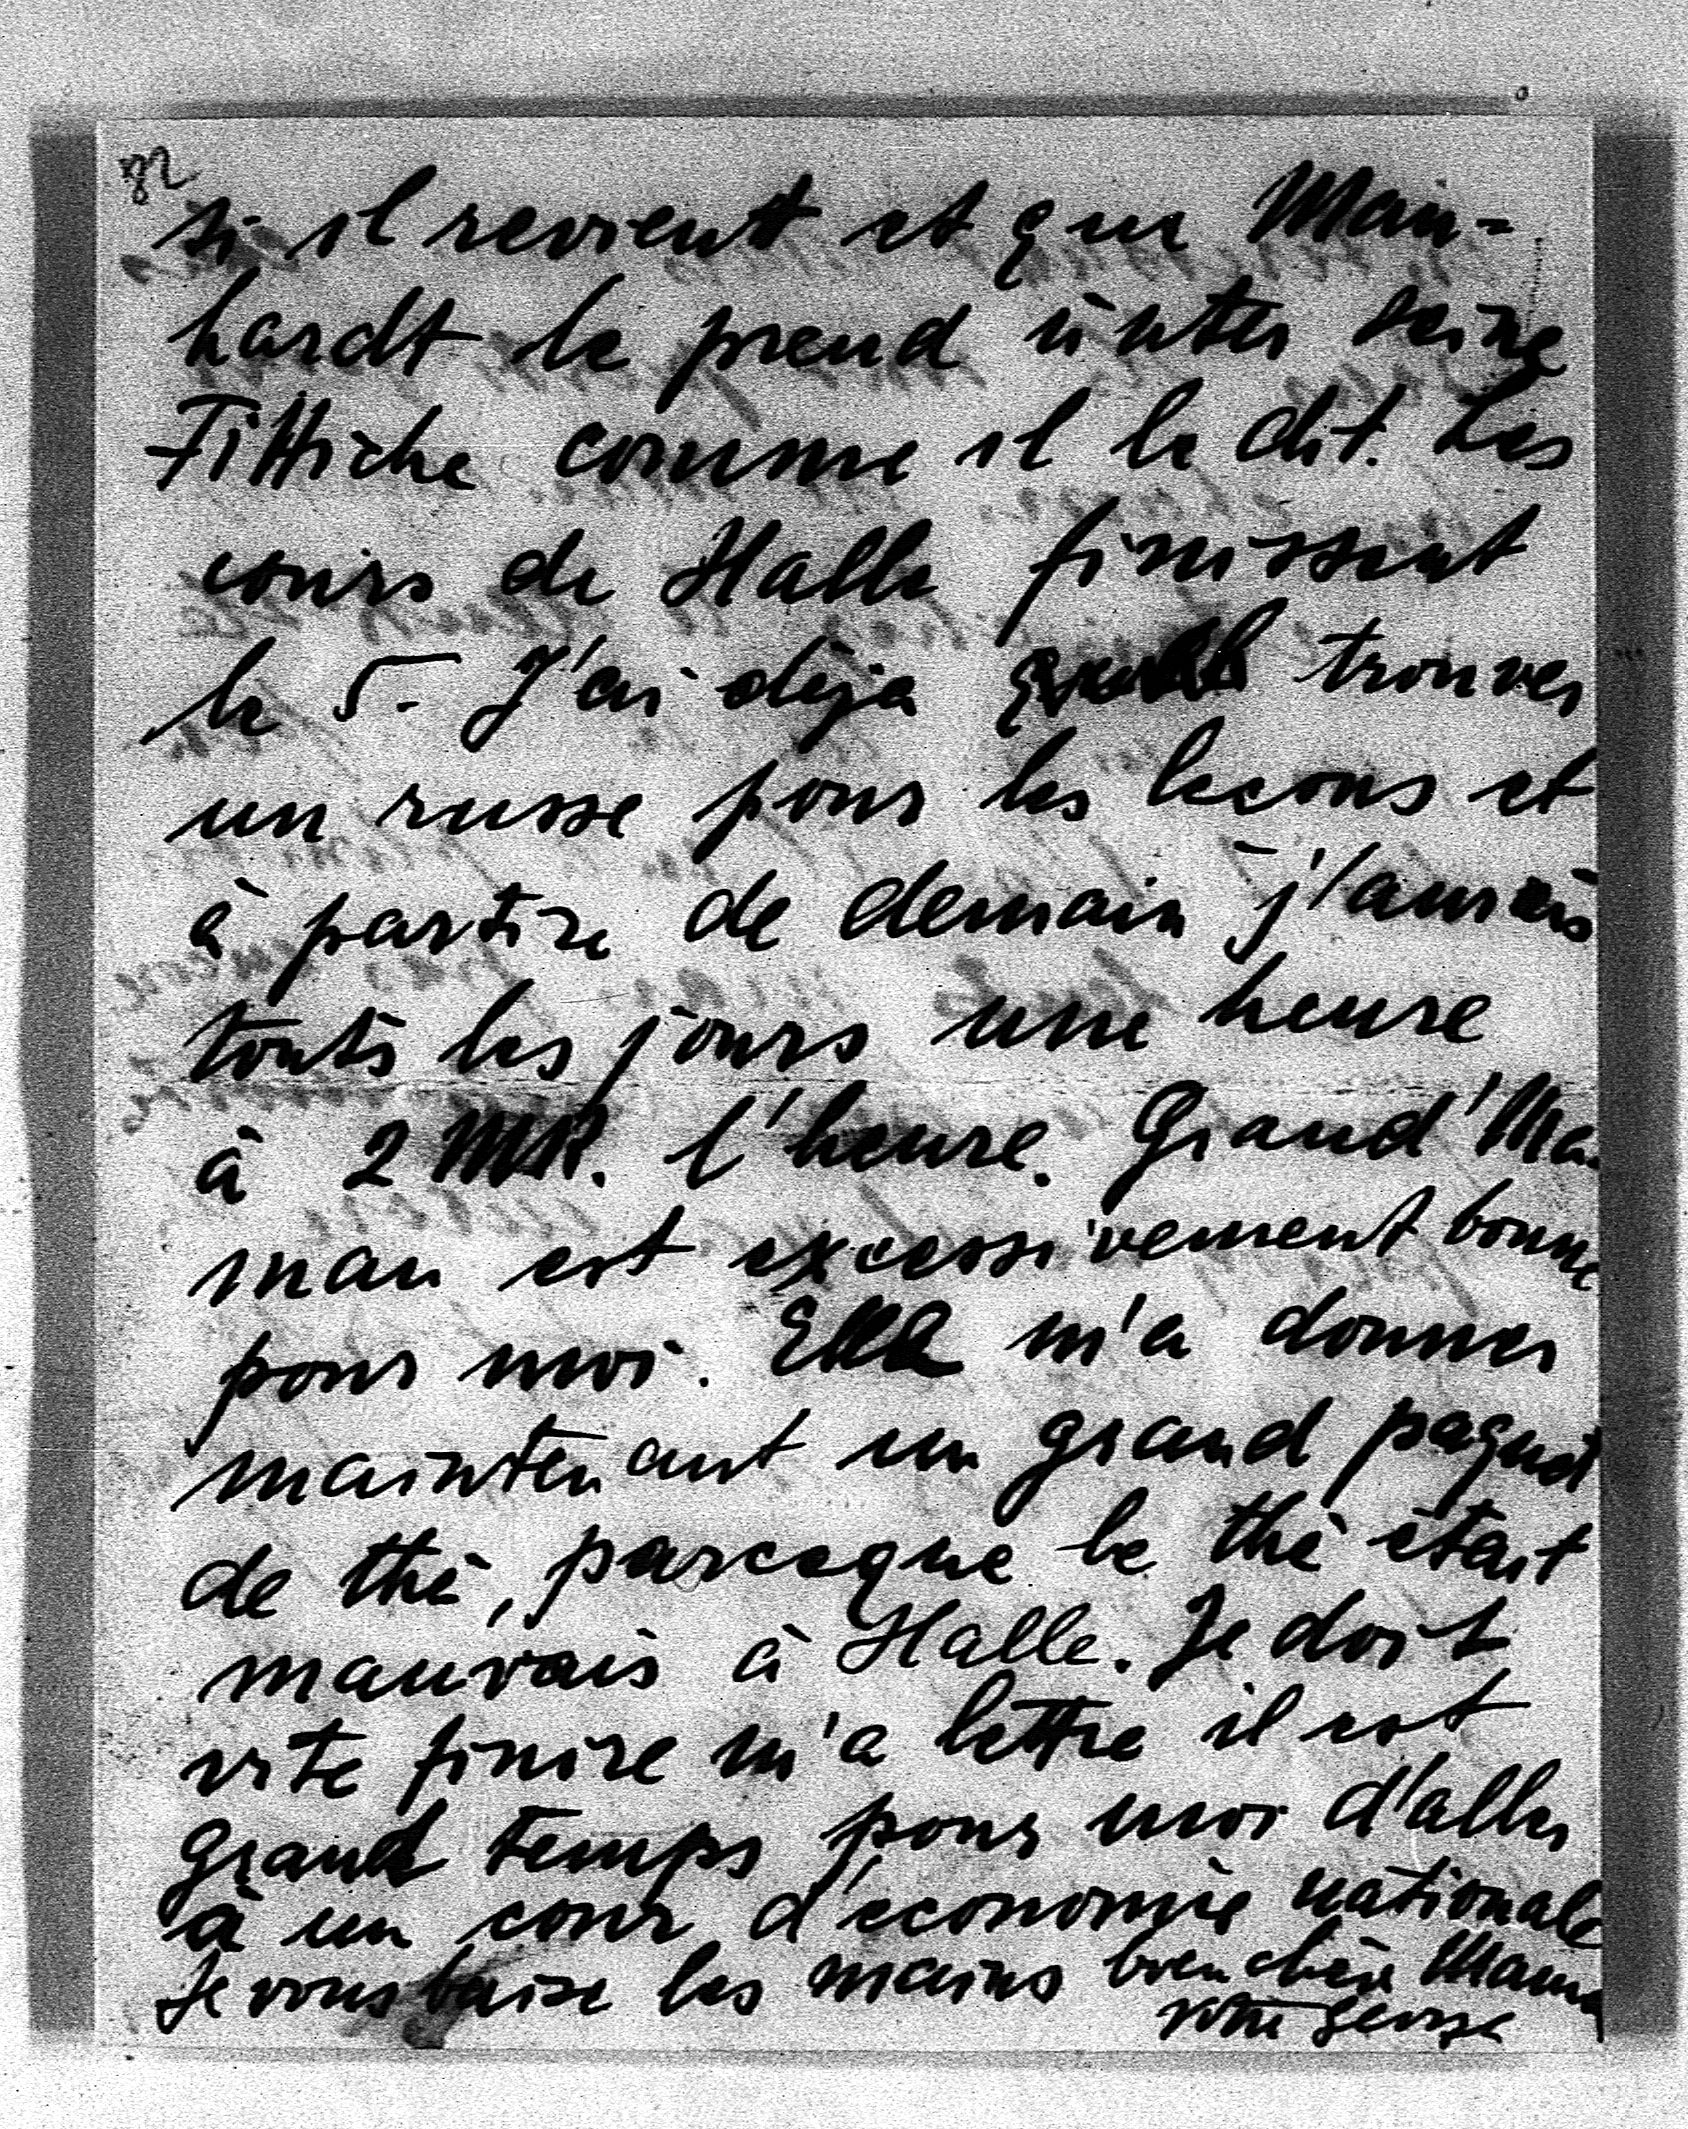 si il revient et que Main-
hardt le prend unter seine
Fittiche comme il le dit. Les
cours de Halle finissent
le 5. J'ai déja trouver
un russe pour les lecons et
à partire de demain j'aurais
touts les jours une heure
à 2 MK. l'heure. Grand'Ma-
man est excessivement bonne
pour moi. Elle m'a donner
maintenant un grand paquet
de thé, parceque le thé était
mauvais à Halle. Je doit
vite finire m'a lettre il est
grand temps pour moi d'aller
à un cour d'économie nationale
Je vous baise les mains bien chère Maman
votre George